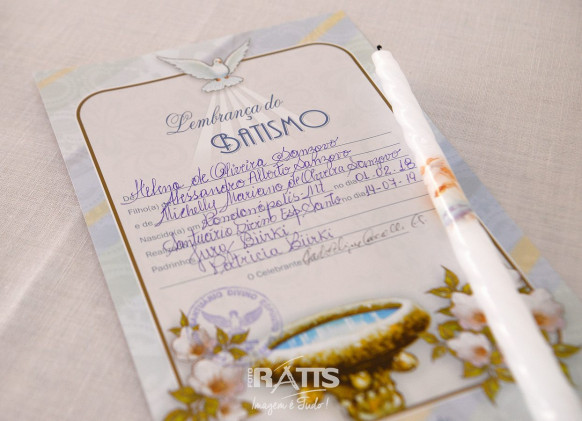 Lembrança do
BATISMO
De Helena de Oliveira Sanzovo
Filho(a) Alessandro Alberto Sanzovo
e de Michelly Mariano de Oliveira Sanzovo
Nascido(a) em Rondonópolis-MT no dia 01-02-18
Santuário Divino Esp. Santo no dia 14-07-19
Padrinhos Jura Bürki
Patricia Bürki
O Celebrante
SANTUÁRIO DIVINO
FOTO RATTS
Imagem é Tudo!